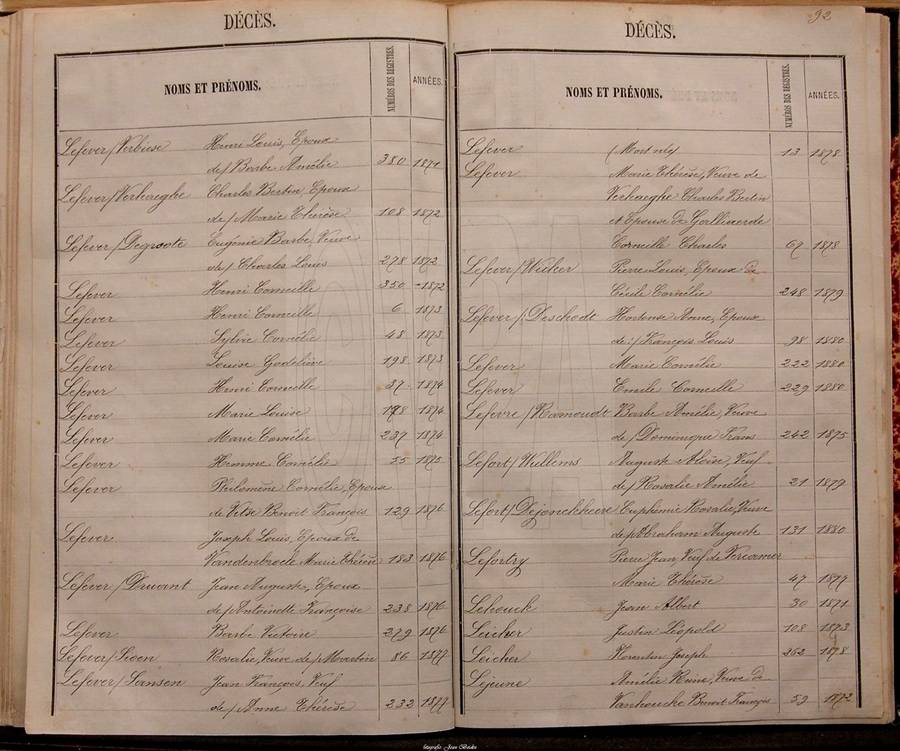 DÉCÈS.
NOMS ET PRÉNOMS. NUMÉROS DES REGISTRES. ANNÉES.
Lefever / Verbiese Henri Louis, Epoux
de / Barbe Amélie 380 1871
Lefever / Verhaeghe Charles Bertin, Epoux
de / Marie Thérèse 108 1872
Lefever / Degroote Eugénie Barbe, Veuve
de / Charles Louis 278 1872
Lefever Henri Corneille 350 1872
Lefever Henri Corneille 6 1873
Lefever Sylvie Cornélie 48 1873
Lefever Louise Godelieve 198 1873
Lefever Henri Corneille 37 1874
Lefever Marie Louise 198 1874
Lefever Marie Cornélie 237 1874
Lefever Cornélie 55 1875
Lefever Philomène Cornélie, Epouse
de Benoit François 129 1876
Lefever Joseph Louis, Epoux de
Marie Thérèse 183 1876
Lefever / Druant Jean Auguste, Epoux
de / Antoinette Françoise 238 1876
Lefever Barbe Victoire 279 1876
Lefever / Rosalie, Veuve de / Martin 86 1877
Lefever / Sansen Jean François, Veuf
de / Anne Thérèse 232 1877
92
DÉCÈS.
NOMS ET PRÉNOMS. NUMÉROS DES REGISTRES. ANNÉES.
Lefever (Mort né) 13 1878
Lefever Marie Thérèse, Veuve de
Verhaeghe Charles Bertin
et Epouse de
Corneille Charles 69 1878
Lefever / Pierre Louis, Epoux de
Cécile Cornélie 248 1879
Lefever / Deschodt Hortense Anne, Epoux
de / François Louis 98 1880
Lefever Marie Cornélie 222 1880
Lefever Emile Corneille 229 1880
Lefevre / Ramoudt Barbe Amélie, Veuve
de / Dominique Frans 242 1875
Lefort / Willems Auguste Aloïse, Veuf
de / Rosalie Amélie 21 1879
Lefort / Dejonckheere Euphémie Rosalie, Veuve
de / Abraham Auguste 131 1880
Lefortry Pierre Jean, Veuf de
Marie Thérèse 47 1877
Lehouck Jean Albert 30 1871
Leicher Justin Léopold 108 1873
Leicher Florentin Joseph 262 1878
Lejeune Amélie Reine, Veuve de
Vanhoucke Benoit François 53 1872
fotografie Jean Beckx